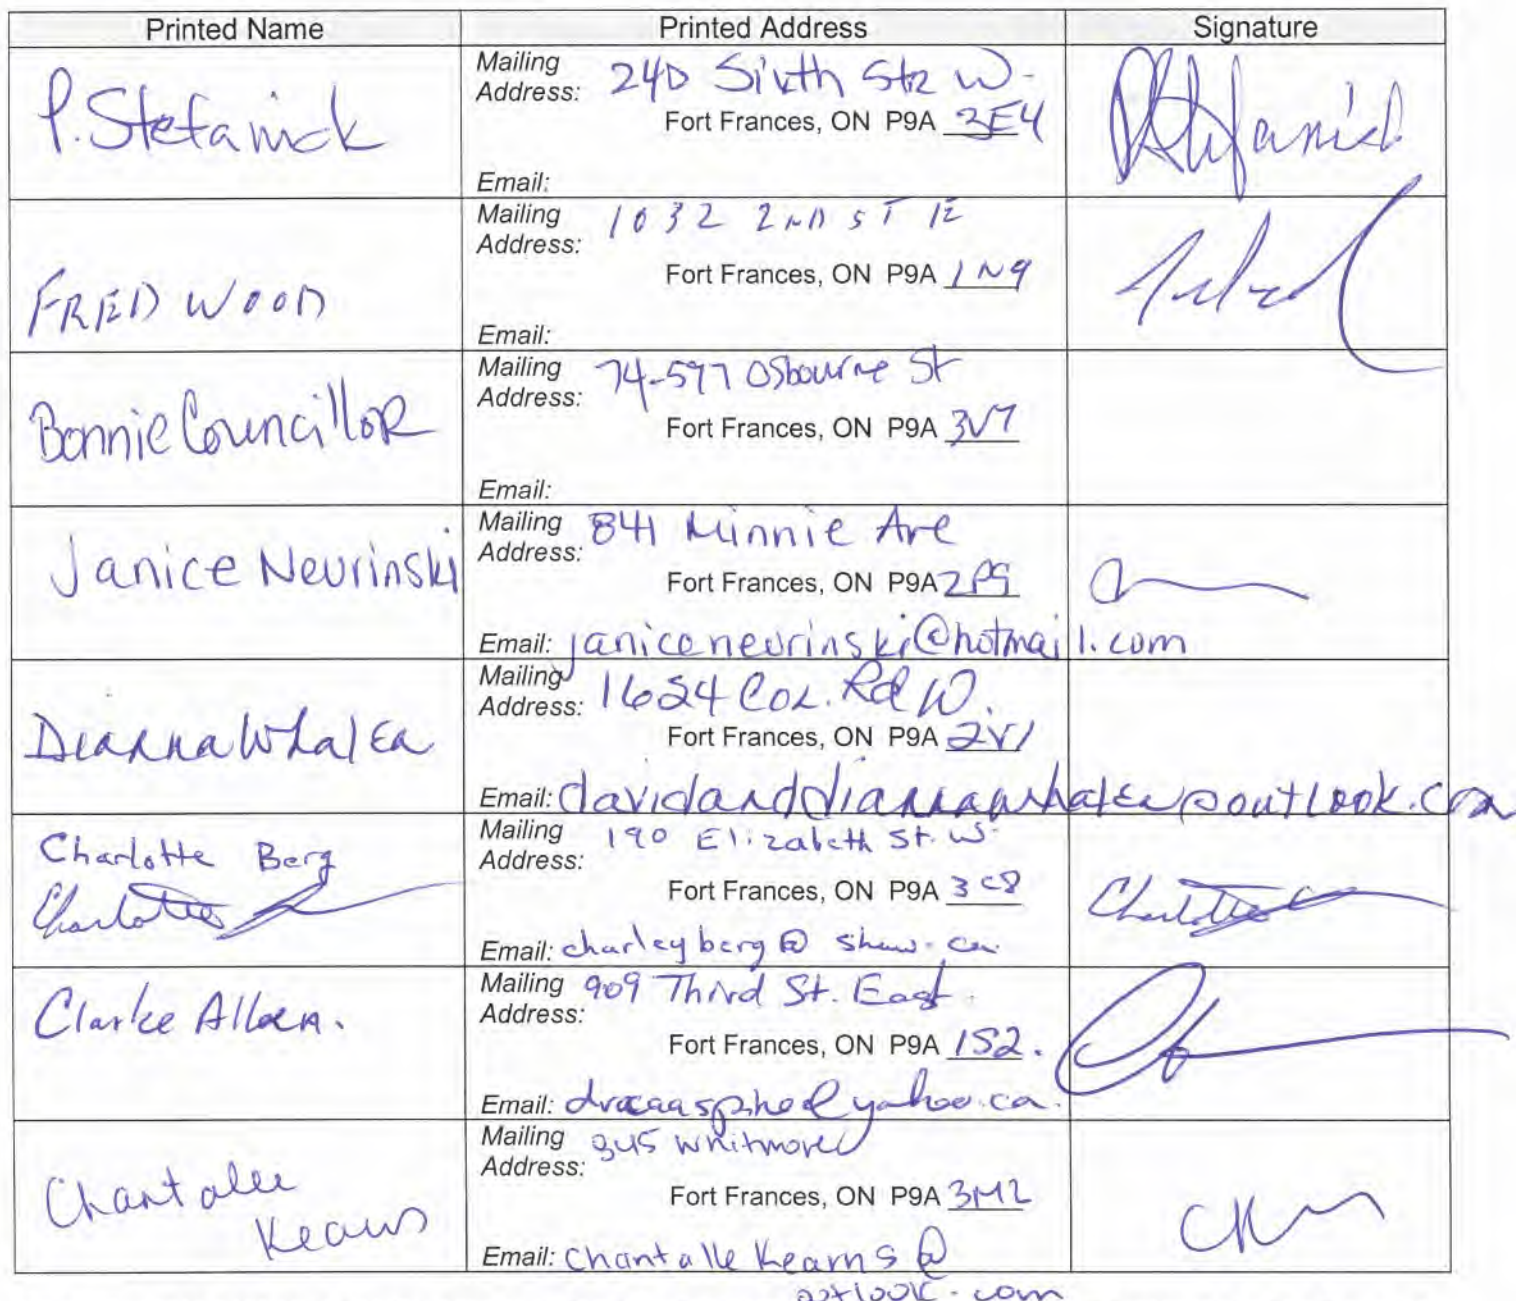 Printed Name Printed Address Signature
P. Stefanick
Mailing Address: 240 Sixth Str W.
Fort Frances, ON P9A 2E4
Email:
FRED WOOD
Mailing Address: 1032 2ND ST E
Fort Frances, ON P9A 1N9
Email:
Bonnie Councillor
Mailing Address: 74-597 Osbourne St
Fort Frances, ON P9A 3V7
Email:
Janice Nevrinski
Mailing Address: 841 Minnie Ave
Fort Frances, ON P9A 2P9
Email: janicenevrinski@hotmail.com
Dianna Whalen
Mailing Address: 1624 Col. Rd W.
Fort Frances, ON P9A 2V1
Email: davidanddiannawhalen@outlook.com
Charlotte Berg
Charlotte
Mailing Address: 190 Elizabeth St. W.
Fort Frances, ON P9A 3C8
Email: charleyberg@shaw.ca
Clarke Allan.
Mailing Address: 909 Third St. East.
Fort Frances, ON P9A 1S2.
Email:
Chantalle Kearns
Mailing Address: 345 Whitmore
Fort Frances, ON P9A 3M2
Email: Chantalle Kearns @
outlook.com